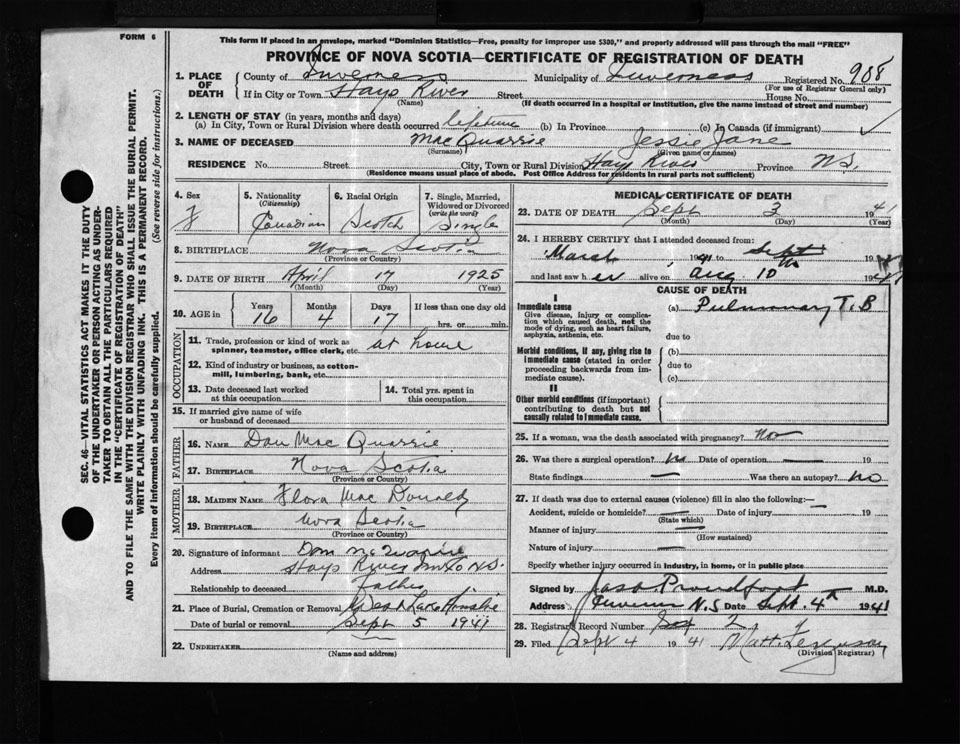 FORM 6
This form if placed in an envelope, marked "Dominion Statistics—Free, penalty for improper use $300," and properly addressed will pass through the mail "FREE"
PROVINCE OF NOVA SCOTIA—CERTIFICATE OF REGISTRATION OF DEATH
1. PLACE OF DEATH
County of Inverness Municipality of Inverness Registered No. 908
(For use of Registrar General only)
If in City or Town Hays River Street House No.
(Name) (If death occurred in a hospital or institution, give the name instead of street and number)
2. LENGTH OF STAY (in years, months and days)
(a) In City, Town or Rural Division where death occurred lifetime (b) In Province (c) In Canada (if immigrant)
3. NAME OF DECEASED MacQuarrie Jessie Jane
(Surname) (Given name or names)
RESIDENCE No. Street City, Town or Rural Division Hays River Province N.S.
(Residence means usual place of abode. Post Office Address for residents in rural parts not sufficient)
4. Sex
F
5. Nationality (Citizenship)
Canadian
6. Racial Origin
Scotch
7. Single, Married, Widowed or Divorced (write the word)
Single
8. BIRTHPLACE Nova Scotia
(Province or Country)
9. DATE OF BIRTH April 17 1925
(Month) (Day) (Year)
10. AGE in
Years Months Days If less than one day old
16 4 17 hrs. or min.
OCCUPATION
11. Trade, profession or kind of work as spinner, teamster, office clerk, etc. at home
12. Kind of industry or business, as cotton-mill, lumbering, bank, etc.
13. Date deceased last worked at this occupation
14. Total yrs. spent in this occupation
15. If married give name of wife or husband of deceased
FATHER
16. NAME Dan Mac Quarrie
17. BIRTHPLACE Nova Scotia
(Province or Country)
MOTHER
18. MAIDEN NAME Flora Mac Donald
19. BIRTHPLACE Nova Scotia
(Province or Country)
20. Signature of informant
Address Hays River N.S.
Relationship to deceased Father
21. Place of Burial, Cremation or Removal West Lake Ainslie
Date of burial or removal Sept 5 1941
22. UNDERTAKER
(Name and address)
MEDICAL CERTIFICATE OF DEATH
23. DATE OF DEATH Sept 3 1941
(Month) (Day) (Year)
24. I HEREBY CERTIFY that I attended deceased from:
March , 1941 to Sept 19
and last saw her alive on Aug 10th 1941
CAUSE OF DEATH
I
Immediate cause (a) Pulmonary T.B
Give disease, injury or complication which caused death, not the mode of dying, such as heart failure, asphyxia, asthenia, etc.
due to
Morbid conditions, if any, giving rise to immediate cause (stated in order proceeding backwards from immediate cause).
(b)
due to
(c)
II
Other morbid conditions (if important) contributing to death but not causally related to immediate cause.
25. If a woman, was the death associated with pregnancy? No
26. Was there a surgical operation? No Date of operation 19
State findings Was there an autopsy? No
27. If death was due to external causes (violence) fill in also the following:—
Accident, suicide or homicide? Date of injury 19
(State which)
Manner of injury
(How sustained)
Nature of injury
Specify whether injury occurred in industry, in home, or in public place
Signed by Jas Proudfoot M.D.
Address Inverness N.S Date Sept. 4th 1941
28. Registrar's Record Number 2
29. Filed Sept 4 1941 Matt. Ferguson
(Division Registrar)
SEC. 46—VITAL STATISTICS ACT MAKES IT THE DUTY
OF THE UNDERTAKER OR PERSON ACTING AS UNDER-
TAKER TO OBTAIN ALL THE PARTICULARS REQUIRED
IN THE "CERTIFICATE OF REGISTRATION OF DEATH"
AND TO FILE THE SAME WITH THE DIVISION REGISTRAR WHO SHALL ISSUE THE BURIAL PERMIT.
WRITE PLAINLY WITH UNFADING INK. THIS IS A PERMANENT RECORD.
Every item of Information should be carefully supplied. (See reverse side for instructions.)